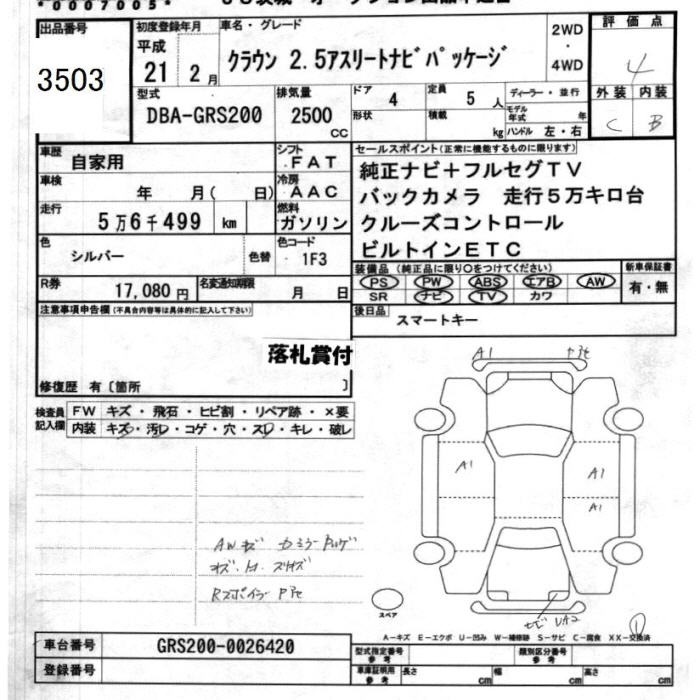 *0007005*
出品番号
3503
初度登録年月
平成
21 2月
車名・グレード
クラウン 2.5アスリートナビパッケージ
2WD
・
4WD
評価点
4
外装 内装
C B
型式
DBA-GRS200
排気量
2500
cc
ドア
4
定員
5人
ディーラー・並行
形状
積載
kg
モデル年式 年
ハンドル 左・右
車歴
自家用
シフト
FAT
車検
年 月( 日)
冷房
AAC
走行
5万6千499 km
燃料
ガソリン
色
シルバー
色替
色コード
1F3
R券
17,080円
名変通知期限
月 日
セールスポイント(正常に機能するものに限ります)
純正ナビ+フルセグTV
バックカメラ 走行5万キロ台
クルーズコントロール
ビルトインETC
装備品(純正品に限り○をつけてください)
PS PW ABS エアB AW
SR ナビ TV カワ
新車保証書
有・無
後日品
スマートキー
注意事項申告欄(不具合内容等は具体的に記入して下さい)
落札賞付
修復歴 有〔箇所 〕
検査員
記入欄
FW キズ・飛石・ヒビ割・リペア跡・×要
内装 キズ・汚レ・コゲ・穴・スレ・キレ・破レ
A1
A1
A1
A1
AWキズ
Rスポイラー
UA2
スペア
①
A-キズ E-エクボ U-凹み W-補修跡 S-サビ C-腐食 XX-交換済
車台番号
GRS200-0026420
登録番号
型式指定番号
参考
類別区分番号
参考
車庫証明用
参考
長さ cm
幅 cm
高さ cm